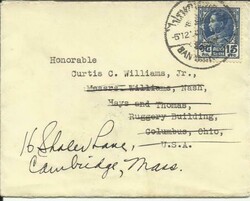 Honorable
Curtis C. Williams, Jr.,
Messrs. Williams, Nash,
Hays and Thomas,
Ruggery Building,
Columbus, Ohio,
U.S.A.
16 Shaler Lane,
Cambridge, Mass.
15